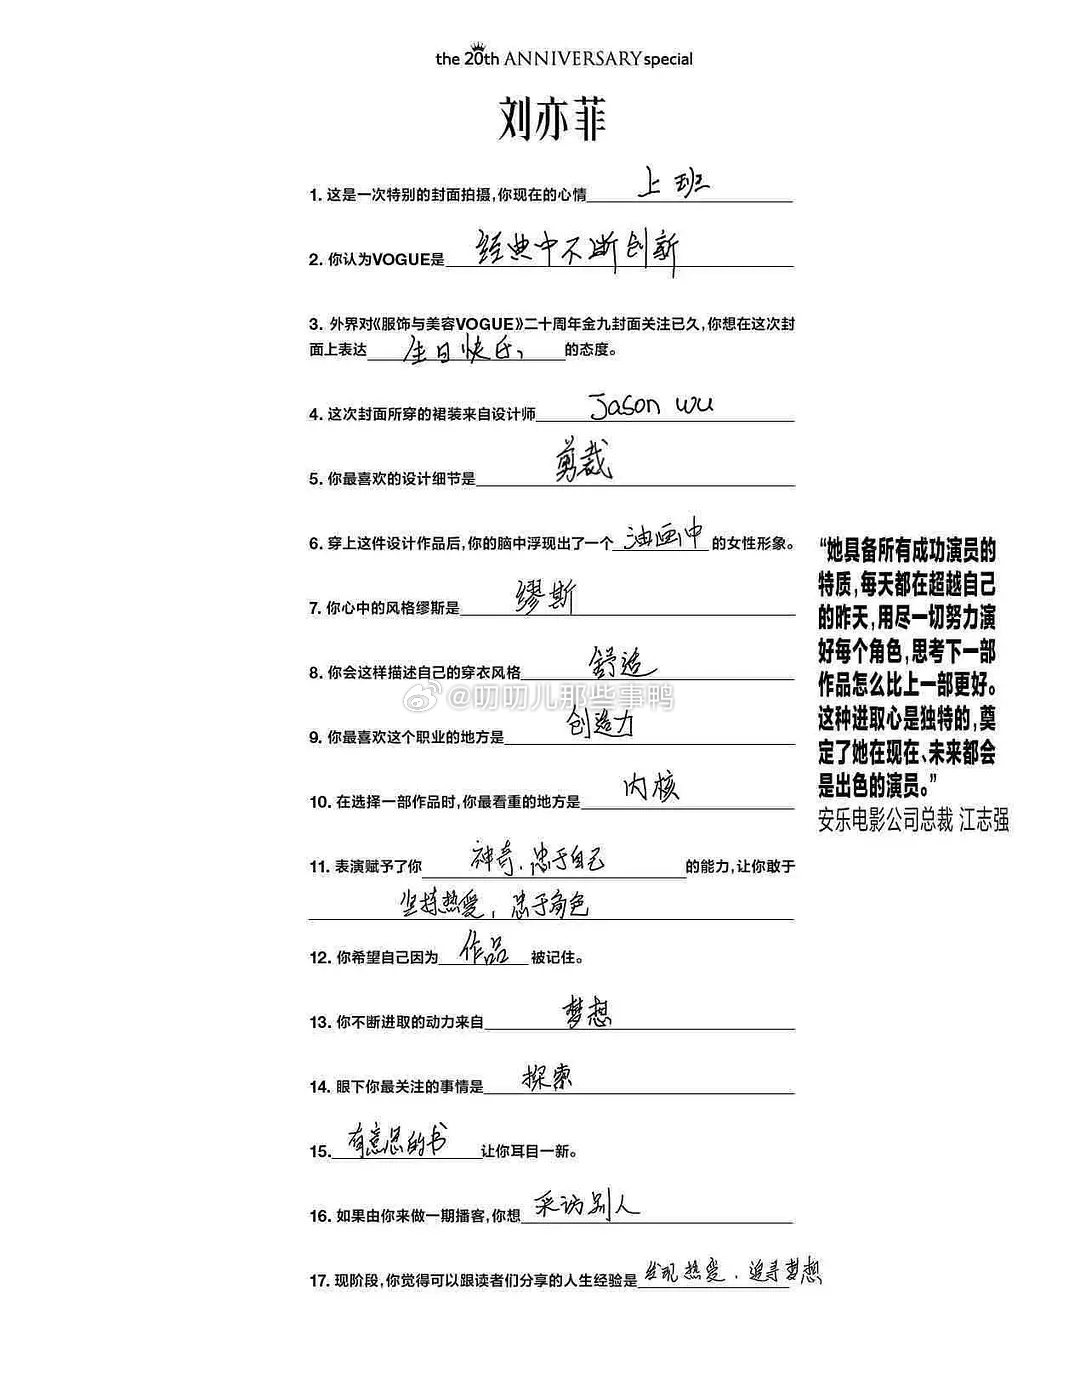 the 20th ANNIVERSARY special
刘亦菲
1. 这是一次特别的封面拍摄，你现在的心情 上班
2. 你认为VOGUE是 经典中不断创新
3. 外界对《服饰与美容VOGUE》二十周年金九封面关注已久，你想在这次封
面上表达 生日快乐， 的态度。
4. 这次封面所穿的裙装来自设计师 Jason Wu
5. 你最喜欢的设计细节是 剪裁
6. 穿上这件设计作品后，你的脑中浮现出了一个 油画中 的女性形象。
7. 你心中的风格缪斯是 缪斯
8. 你会这样描述自己的穿衣风格 舒适
@叨叨儿那些事鸭
9. 你最喜欢这个职业的地方是 创造力
10. 在选择一部作品时，你最看重的地方是 内核
11. 表演赋予了你 神奇，忠于自己 的能力，让你敢于
坚持热爱，忠于角色
12. 你希望自己因为 作品 被记住。
13. 你不断进取的动力来自 梦想
14. 眼下你最关注的事情是 探索
15. 有意思的书 让你耳目一新。
16. 如果由你来做一期播客，你想 采访别人
17. 现阶段，你觉得可以跟读者们分享的人生经验是 发现热爱，追寻梦想
“她具备所有成功演员的
特质，每天都在超越自己
的昨天，用尽一切努力演
好每个角色，思考下一部
作品怎么比上一部更好。
这种进取心是独特的，奠
定了她在现在、未来都会
是出色的演员。”
安乐电影公司总裁 江志强